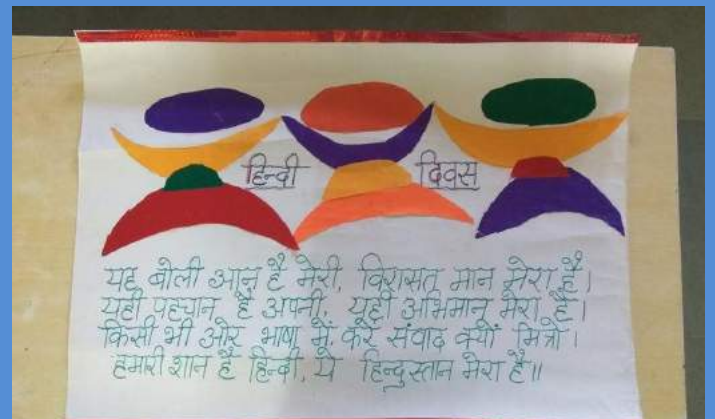 हिन्दी दिवस
यह बोली आन है मेरी, विरासत मान मेरा है।
यही पहचान है अपनी, यही अभिमान मेरा है।
किसी भी ओर भाषा में, करें संवाद क्यों मित्रो।
हमारी शान है हिन्दी, ये हिन्दुस्तान मेरा है॥